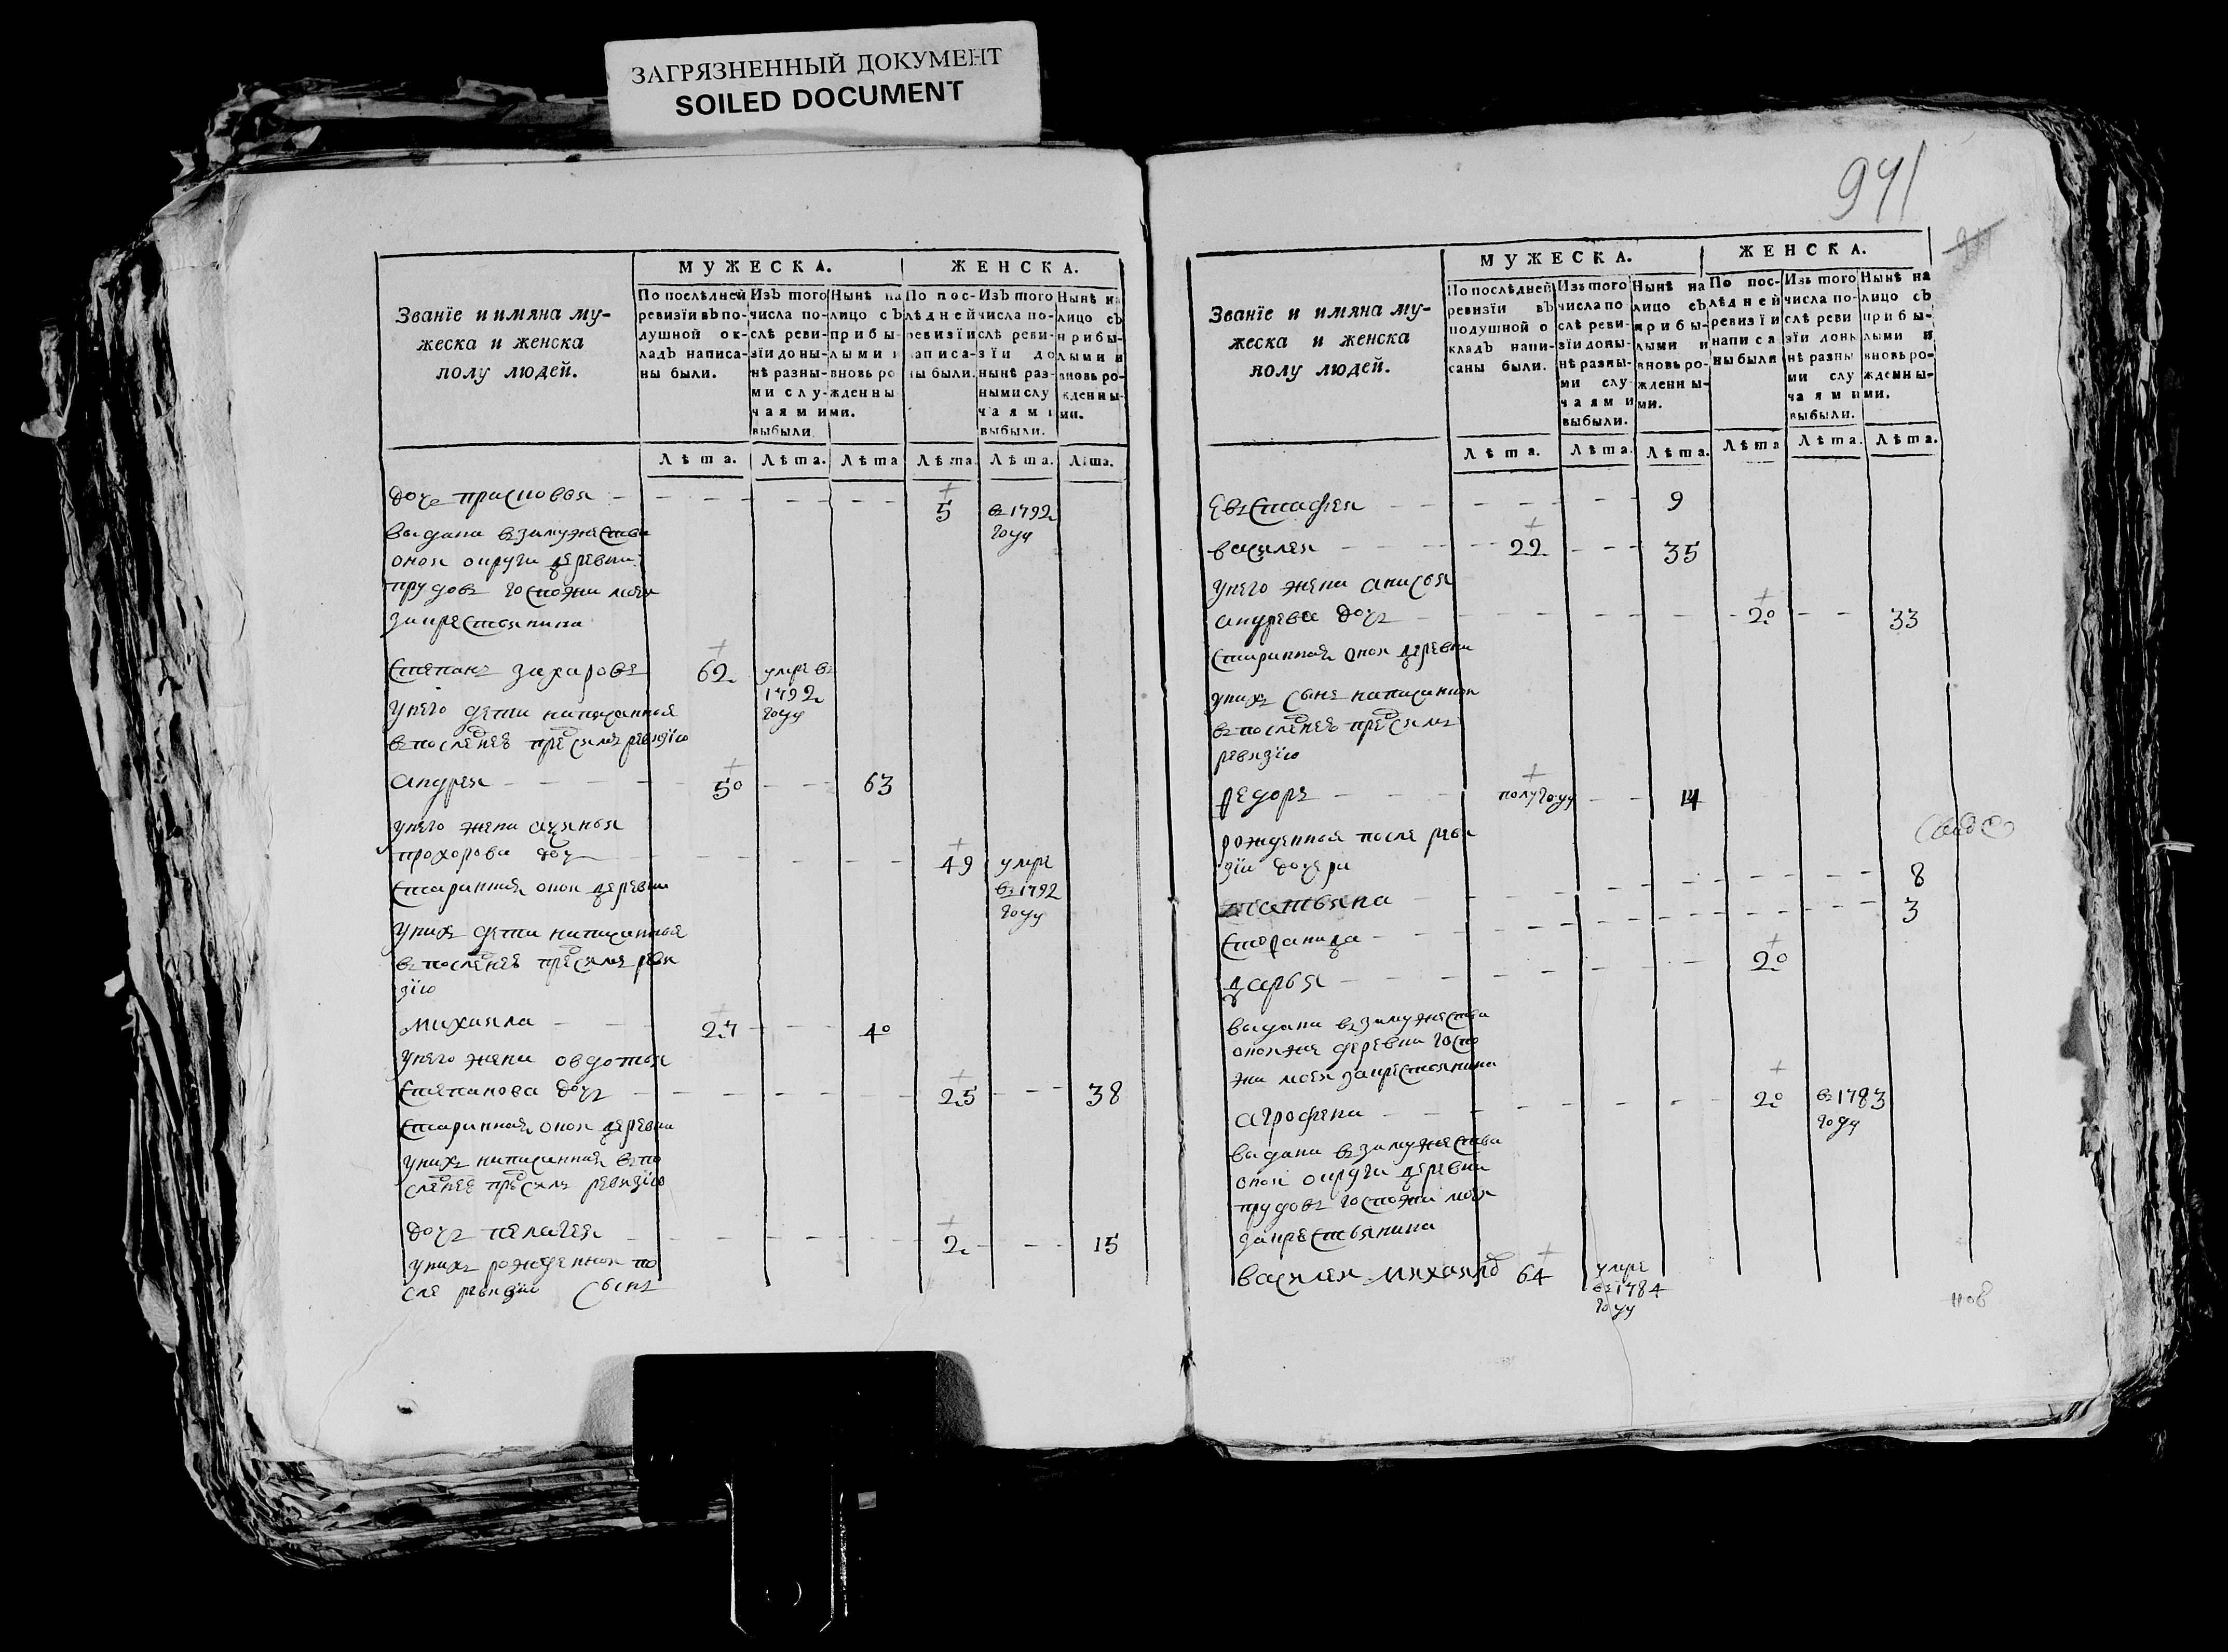 ЗАГРЯЗНЕННЫЙ ДОКУМЕНТ
SOILED DOCUMENT
941
Званїе и имяна му-
жеска и женска
полу людей.
МУЖЕСКА.
ЖЕНСКА.
По послѣдней ревизїи въ по-душной ок-ладъ написа-ны были.
Изъ того числа по-слѣ реви-зїи до ны-нѣ разны-ми слу-чаями выбыли.
Нынѣ на лицо съ прибы-лыми и вновь рожденны ми.
По пос-лѣдней ревизїи написа-ны были.
Изъ того числа по-слѣ реви-зїи до нынѣ раз-ными слу чаями выбыли.
Нынѣ на лицо съ прибы-лыми и вновь ро-жденны-ми.
Лѣта. Лѣта. Лѣта Лѣта. Лѣта. Лѣта.
доче прасковья 5 въ 1792
году
выдана взамужества
оной округи деревни
прудовъ госпожи моей
закрестьянина
степанъ захаровъ 62 умре въ
1792
году
унего дети написанныя
впоследнею пред симъ ревизїю
андрей 50 63
унего жена
прохорова дочь 49 умре
въ 1792
году
старинная оной деревни
унихъ дети написанныя
впоследнею пред симъ реви
зїю
михаила 27 40
унего жена овдотья
степанова дочь 25 38
старинная оной деревни
унихъ написанная впо
следнею пред симъ ревизїю
дочь пелагея 2 15
унихъ рожденной по
сле ревизїи сынъ
Званїе и имяна му-
жеска и женска
полу людей.
МУЖЕСКА.
ЖЕНСКА.
По послѣдней ревизїи въ подушной о кладъ напи-саны были.
Изъ того числа по слѣ реви-зїи доны-нѣ разны-ми слу-чаями выбыли.
Нынѣ на лицо съ прибы-лыми и вновь ро-жденны-ми.
По пос-лѣдней ревизїи написа ны были
Изъ того числа по-слѣ реви зїи донынѣ разны ми слу чаями выбыли.
Нынѣ на лицо съ прибы-лыми и вновь ро-жденны-ми.
Лѣта. Лѣта. Лѣта. Лѣта Лѣта. Лѣта.
Евъстафей 9
василей 22 35
унего жена анисья
андрева дочь 20 33
старинная оной деревни
унихъ сынъ написанной
впоследнею пред симъ
ревизїю
федоръ полугоду 14
рожденныя после реви
зїи дочери
татьяна 8
3
дарья 20
выдана взамужества
оной же деревни госпо
жи моей закрестьянина
агрофена 20 въ 1783
году
выдана взамужества
оной округи деревни
прудовъ госпожи моей
закрестьянина
василей михайлов 64 умре
въ 1784
году